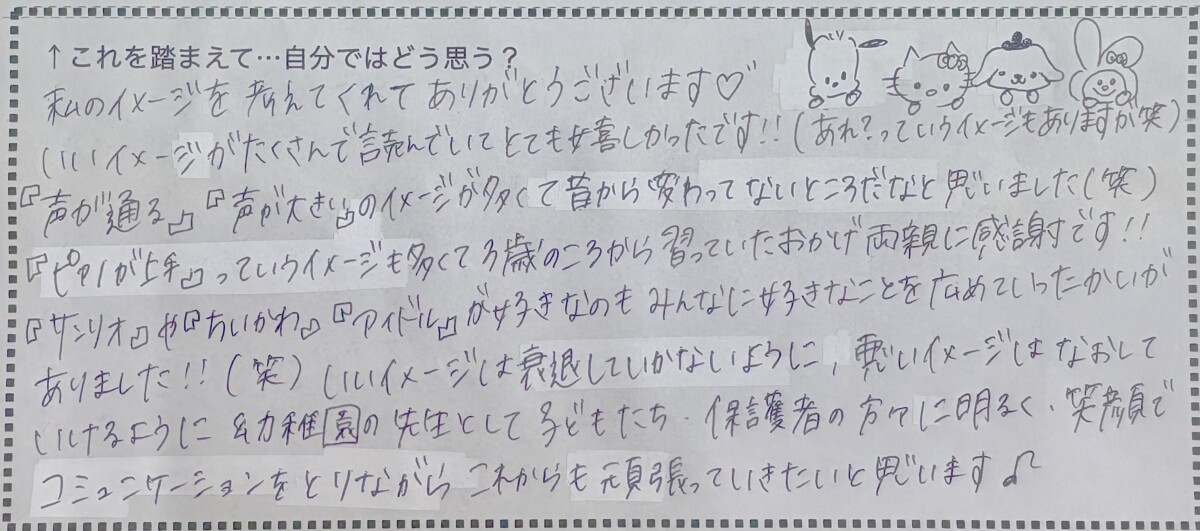 ↑これを踏まえて…自分ではどう思う？
私のイメージを考えてくれてありがとうございます♡
いいイメージがたくさんで読んでいてとても嬉しかったです!!(あれ?っていうイメージもありますが笑)
『声が通る』『声が大きい』のイメージが多くて昔から変わってないところだなと思いました(笑)
『ピアノが上手』っていうイメージも多くて3歳のころから習っていたおかげ両親に感謝です!!
『サンリオ』や『ちいかわ』『アイドル』が好きなのもみんなに好きなことを広めていったかいが
ありました!!(笑)いいイメージは衰退していかないように、悪いイメージはなおして
いけるように幼稚園の先生として子どもたち・保護者の方々に明るく、笑顔で
コミュニケーションをとりながらこれからも頑張っていきたいと思います♪